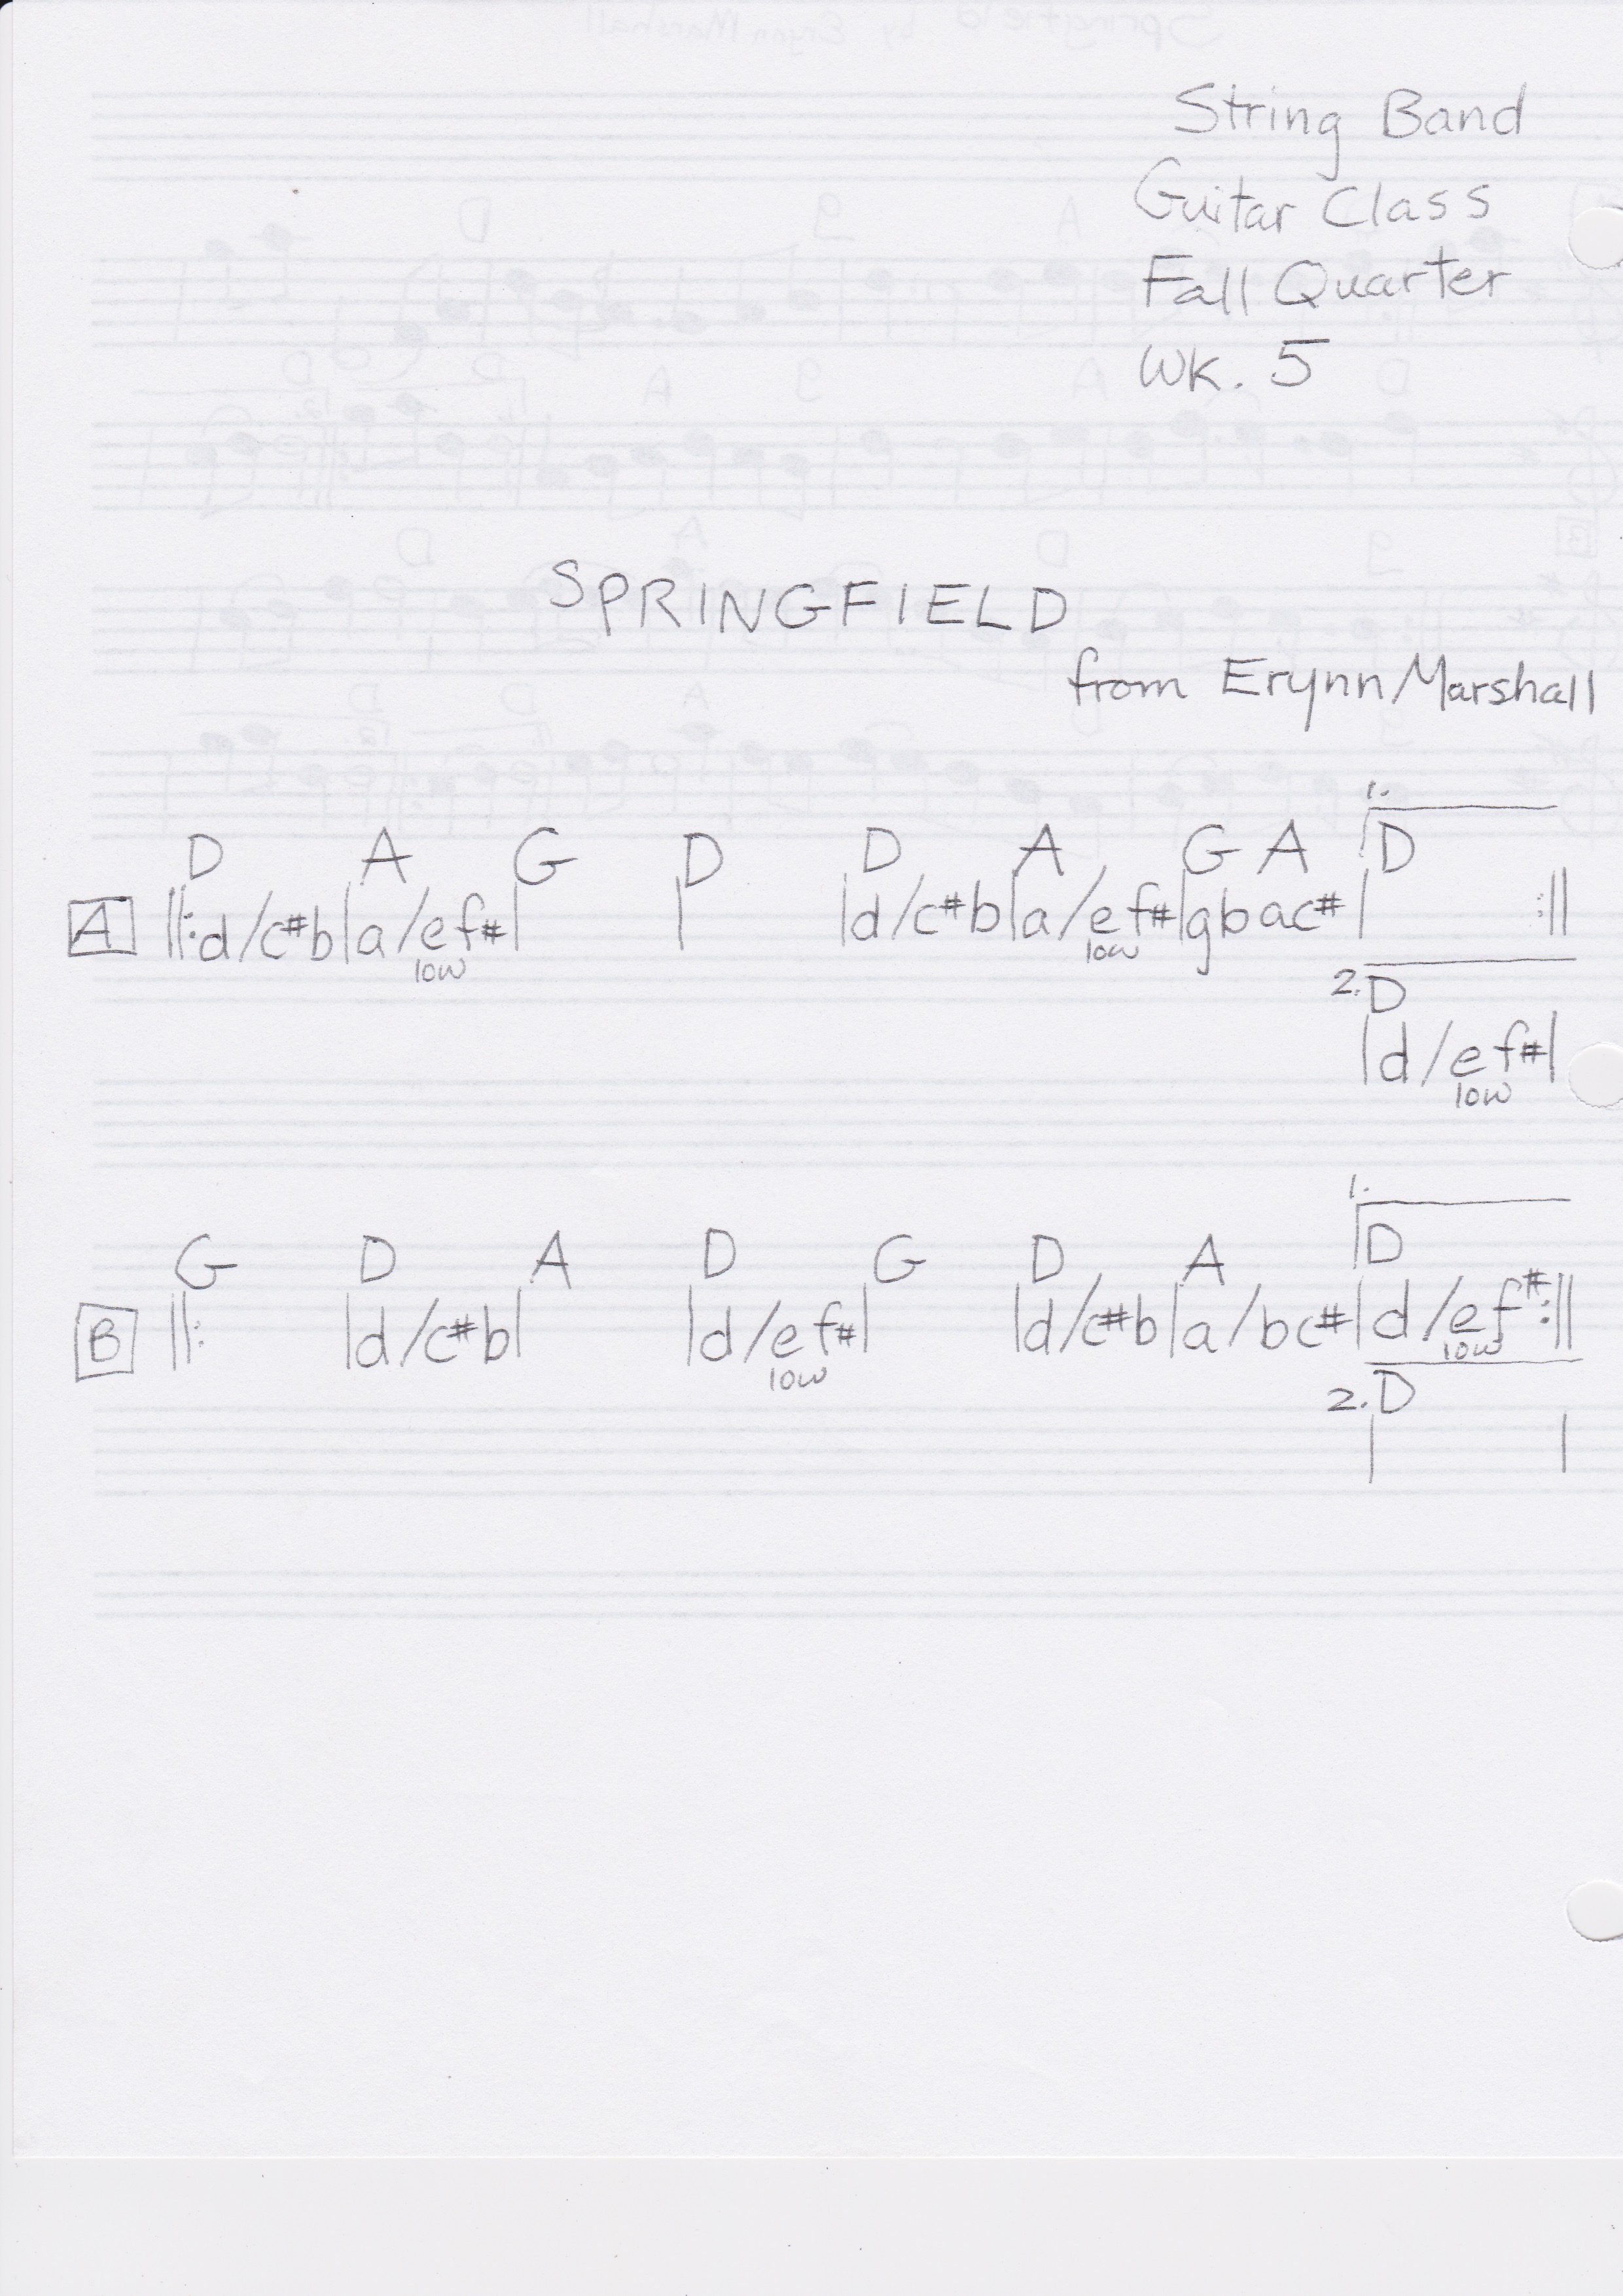 String Band
Guitar Class
Fall Quarter
Wk. 5
SPRINGFIELD
from Erynn Marshall
1.
D A G D D A G A D
A ||: d/c#b | a/ef# | | | d/c#b | a/ef# | gbac# | :||
low low
2. D
| d/ef# |
low
1.
G D A D G D A D
B ||: | d/c#b | | d/ef# | | d/c#b | a/bc# | d/ef# :||
low low
2. D
| |